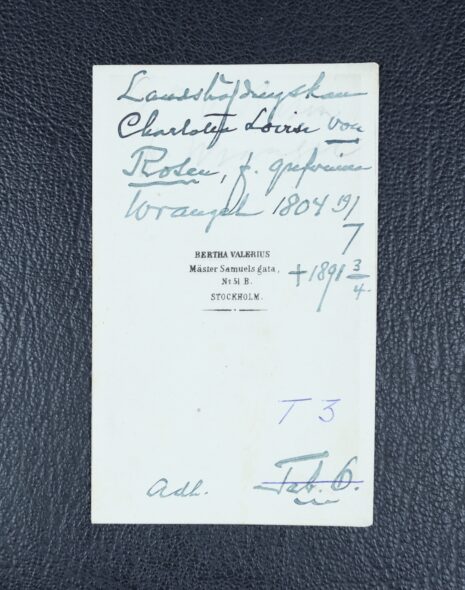 Landshöfdingskan
Charlotte Lovisa von
Rosen, f. grefvinna
Wrangel 1804 19/7
† 1891 3/4
BERTHA VALERIUS
Mäster Samuels gata,
No 51 B.
STOCKHOLM.
T 3
Adh. Tab. 6.